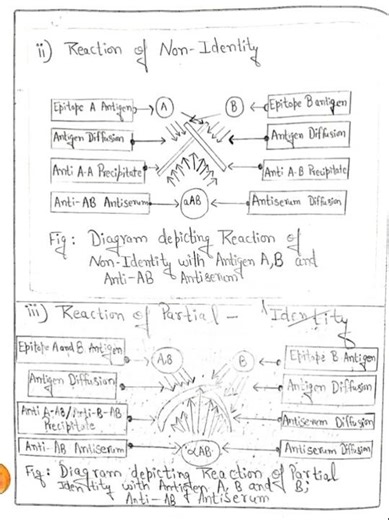 ii) Reaction of Non-Identity
Epitope A Antigen
A
B
Epitope B antigen
Antigen Diffusion
Antigen Diffusion
Anti A-A Precipitate
Anti A-B Precipitate
Anti-AB Antiserum
αAB
Antiserum Diffusion
Fig: Diagram depicting Reaction of
Non-Identity with Antigen A,B and
Anti-AB Antiserum
iii) Reaction of Partial - Identity
Epitope A and B Antigen
AB
B
Epitope B Antigen
Antigen Diffusion
Antigen Diffusion
Anti A-AB/Anti-B-AB
Precipitate
Antiserum Diffusion
Anti-AB Antiserum
αAB
Antiserum Diffusion
Fig: Diagram depicting Reaction of Partial
Identity with Antigen A, B and B;
Anti-AB Antiserum